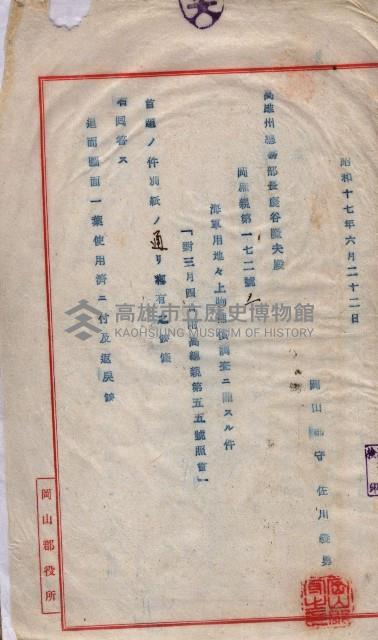 昭和十七年六月二十二日
岡山郡守 佐川
高雄州總務部長
岡庶親第一七二號ノ三
海軍用地々上物件
ニ關スル件
「對三月四日附高總親第五五號照會」
首題ノ件別紙ノ通リ
右回答ス
追而圖面一葉使用濟ニ付及返戻候
岡山郡役所
高雄市立歷史博物館
KAOHSIUNG MUSEUM OF HISTORY